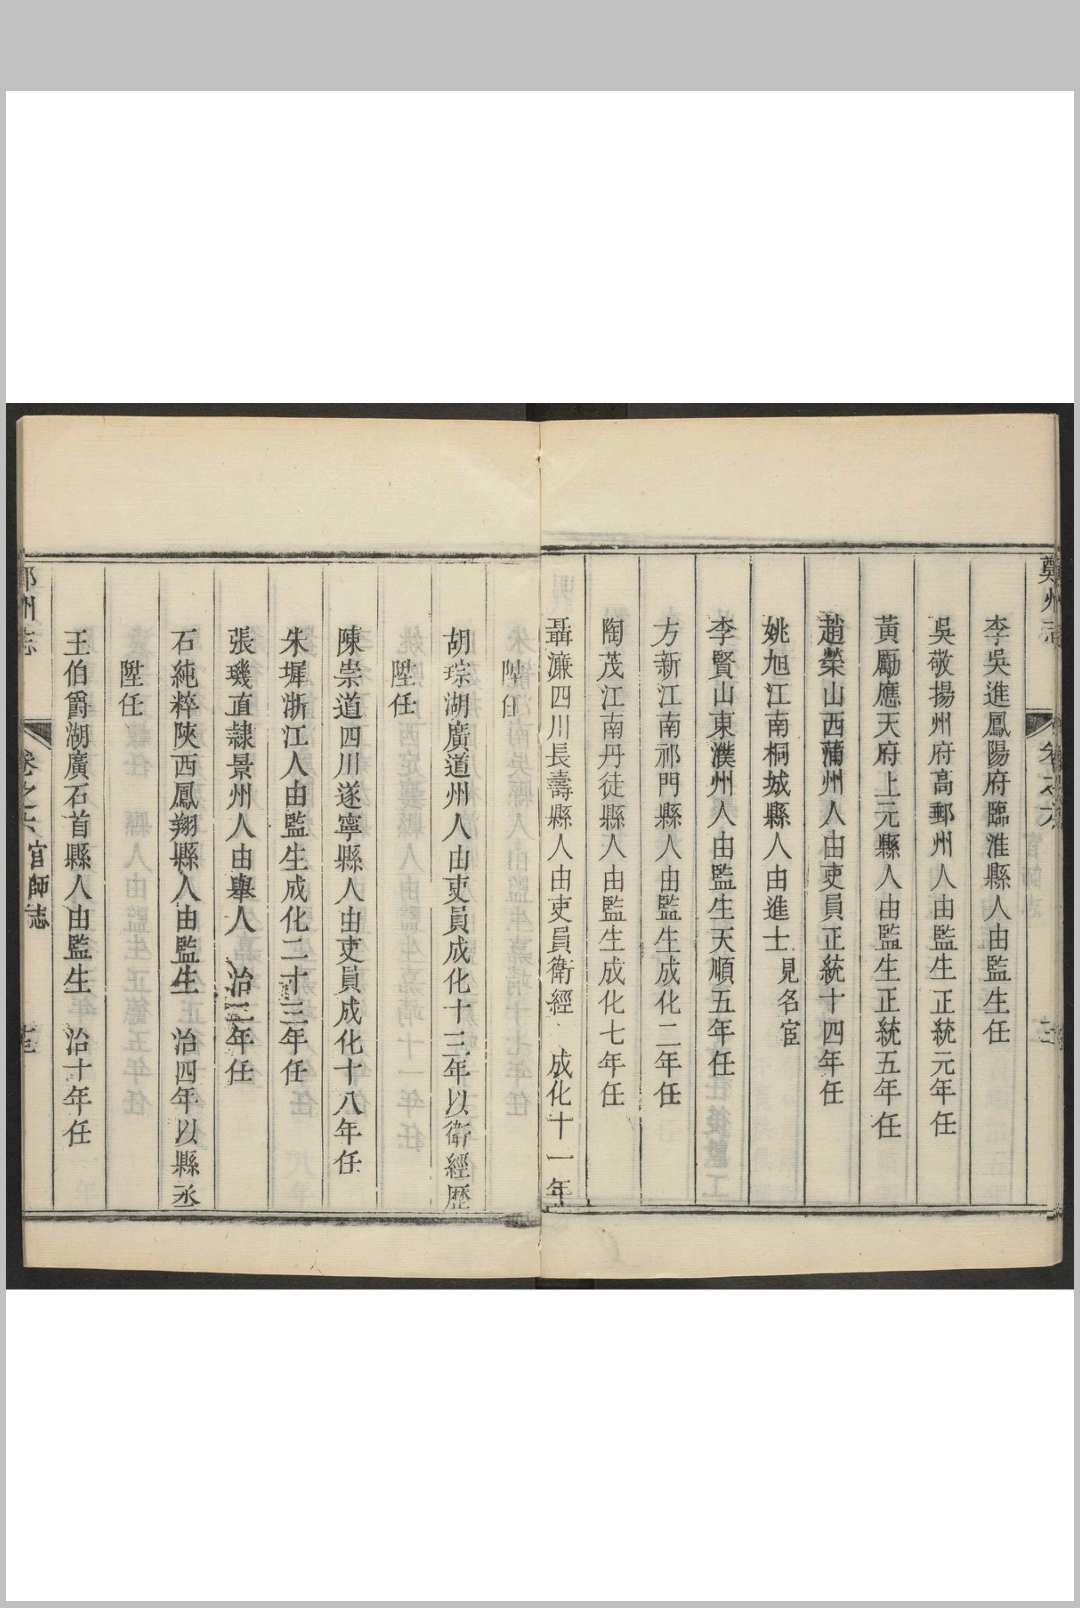 鄭州志
卷之六
李吳進鳳陽府臨淮縣人由監生任
吳敬揚州府高郵州人由監生正統元年任
黃勵應天府上元縣人由監生正統五年任
趙榮山西蒲州人由吏員正統十四年任
姚旭江南桐城縣人由進士見名宦
李賢山東濮州人由監生天順五年任
方新江南祁門縣人由監生成化二年任
陶茂江南丹徒縣人由監生成化七年任
聶濂四川長壽縣人由吏員衛經 成化十一年
陞任
胡琮湖廣道州人由吏員成化十三年以衛經歷
陞任
陳崇道四川遂寧縣人由吏員成化十八年任
朱墀浙江人由監生成化二十三年任
張璣直隸景州人由舉人 治三年任
石純粹陝西鳳翔縣人由監生 治四年以縣丞
陞任
王伯爵湖廣石首縣人由監生 治十年任
州志
卷之六 官師志